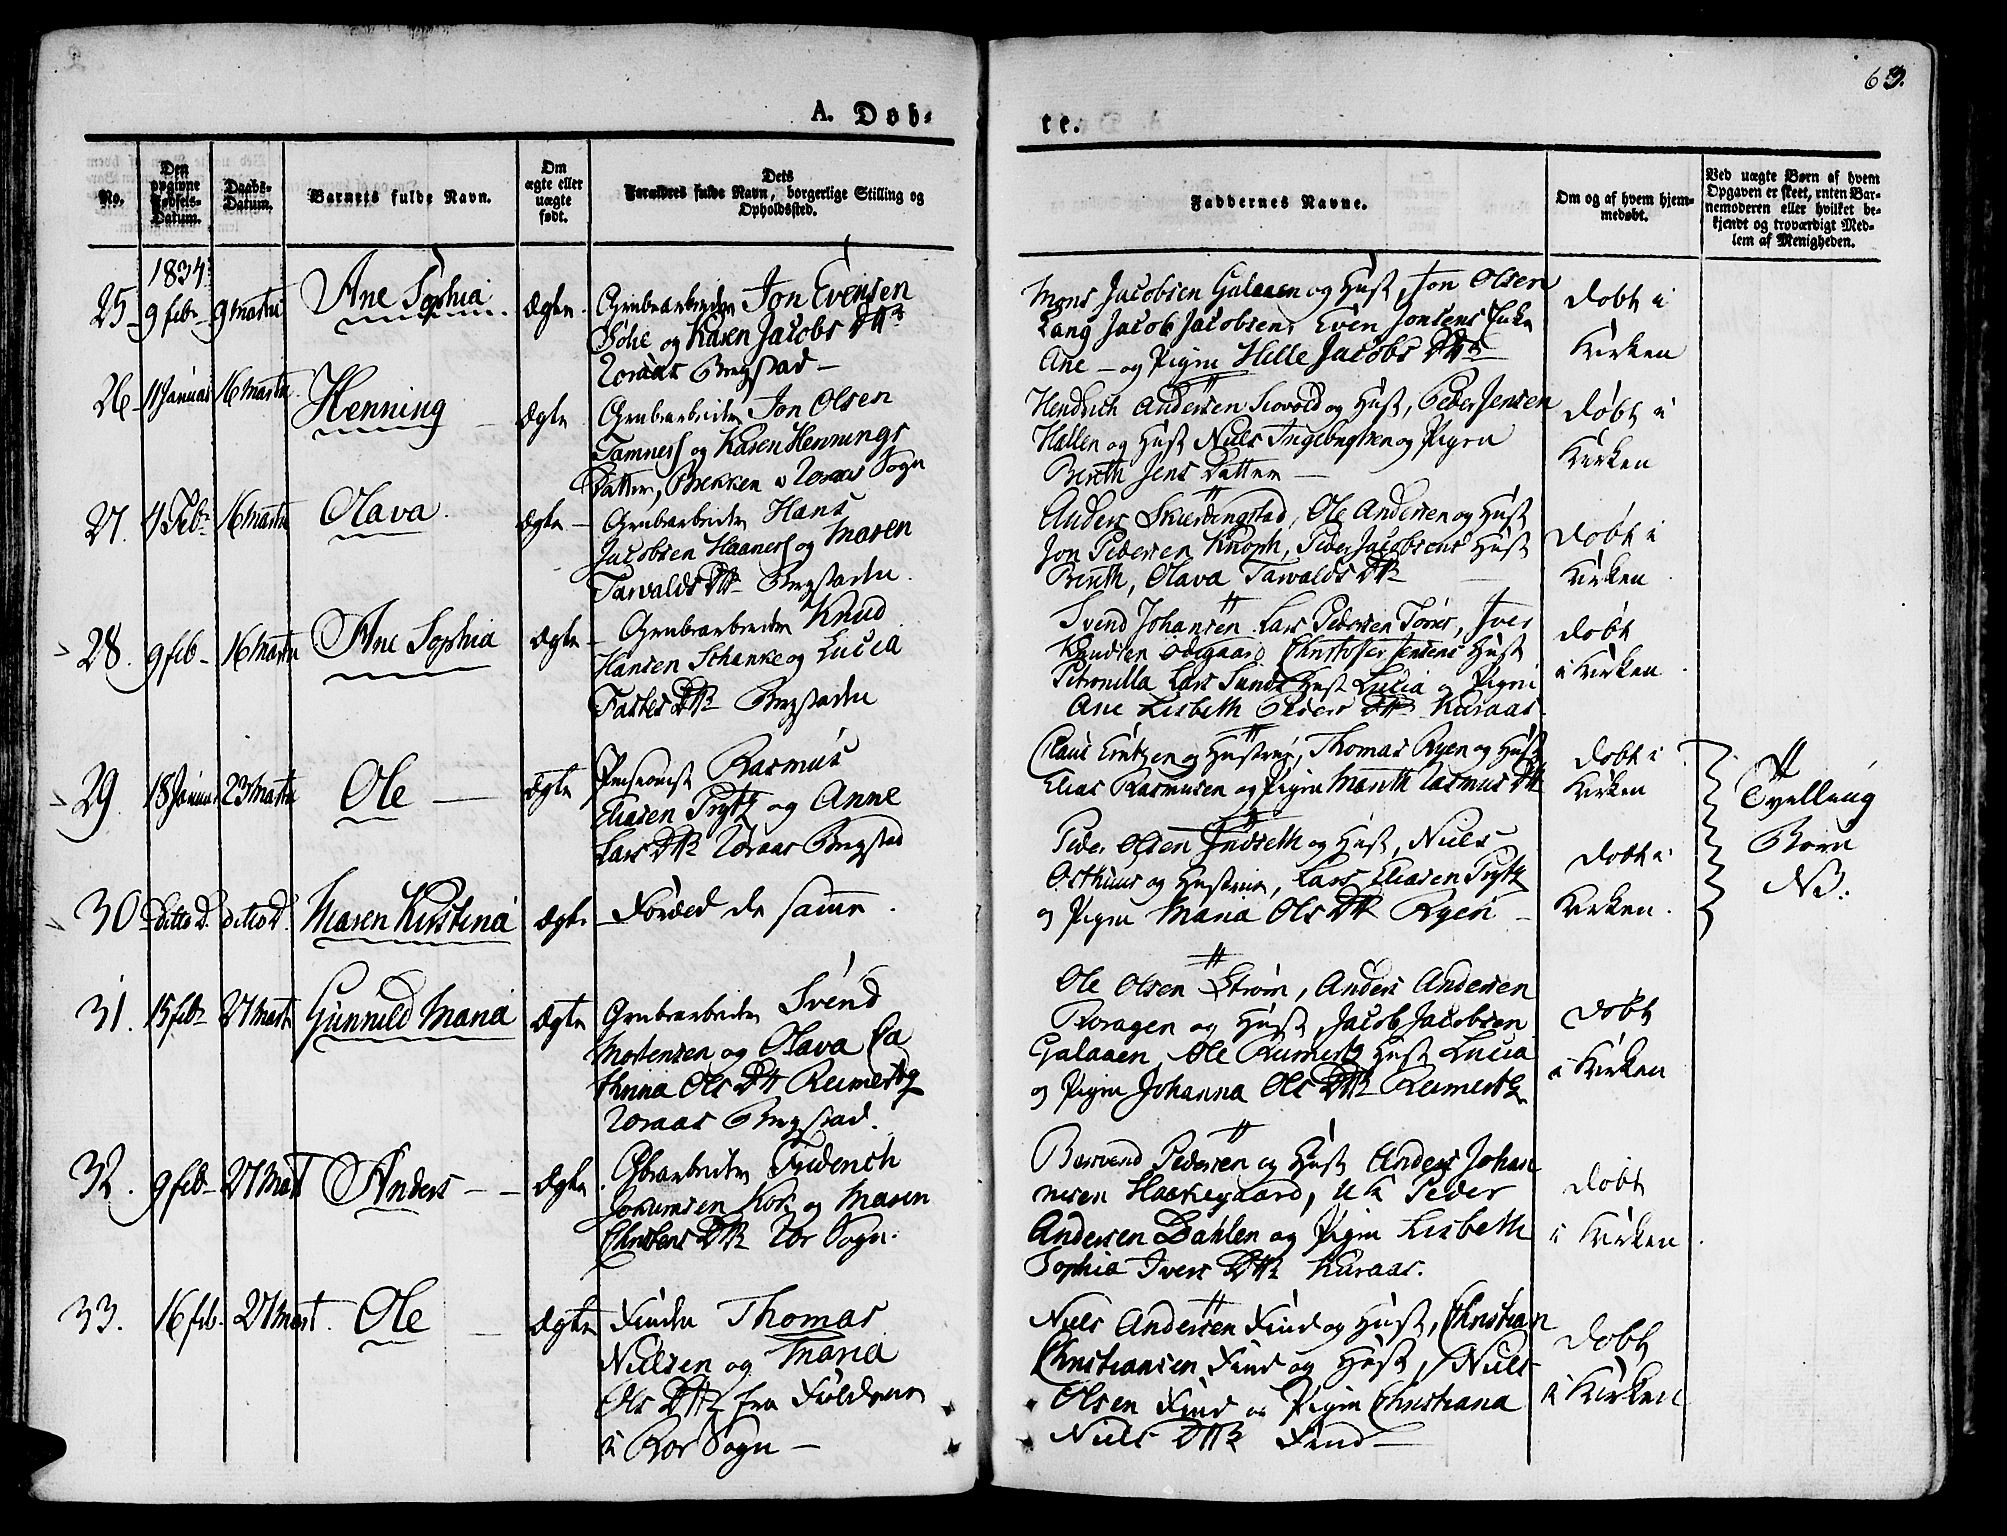 63.
A. Døb-
te.
No.
Den opgivne Fødsels-Datum.
Daabs-Datum.
Barnets fulde Navn.
Om ægte eller uægte født.
Dets Forældres fulde Navn, borgerlige Stilling og Opholdssted.
Faddernes Navne.
Om og af hvem hjemmedøbt.
Ved uægte Børn af hvem Opgaven er skeet, enten Barnemoderen eller hvilket bekjendt og troværdigt Medlem af Menigheden.
1834
25 9 feb 9 Martii Ane Sophia Ægte
Grubearbeider Jon Evensen
og Karen Jacobs Dttr
Røraas Bergstad
Mons Jacobsen Galaaen og Hust, Jon Olsen
Lang Jacob Jacobsen, Even Jonsens Enke
Ane og Pigen Helle Jacobs Dttr
døbt i
Kirken
26 11 Januar 16 Martii Henning Ægte
Grubearbeider Jon Olsen
Tamnes og Karen Hennings
Datter, Brekken i Røraas Sogn
Hendrich Andersen og Hust, Peder Jensen
Hallen og Hust Niels Ingebrigtsen og Pigen
Berith Jens Datter
døbt i
Kirken
27. 4 Feb 16 Martii Olava Ægte
Grubearbeider Hans
Jacobsen Haanes og Maren
Tarvalds Dtr Bergstaden.
Anders Skierdingstad, Ole Andersen og Hust
Jon Pedersen Knoph, Peder Jacobsens Hust
Berith, Olava Tarvalds Dtr
døbt i
Kirken
28. 9 feb 16 Martii Ane Sophia Ægte
Grubearbeider Knud
Hansen Schanke og Lucia
Fastes Dtr Bergstaden
Svend Johansen Lars Pedersen Torres, Iver
Knudsen Ødegaard Christofer Jensens Hust
Petronilla Lars Sunds Hust Lucia og Pigen
Ane Lisbeth Peders Dtr Kuraas
døbt
i Kirken
29 18 Januar 23 Martii Ole Ægte
Pensionist Rasmus
Eliasen Prytz og Anne
Lars Dtr Røraas Bergstad
Claus Erntzen og Hustrue, Thomas Ryen og Hust
Elias Rasmusen og Pigen Marith Rasmus Dtr
døbt i
Kirken
Tvelling
Børn
NB.
30 Ditto D. ditto D. Maren Kirstina Ægte Foræd de samme.
Peder Olsen Indseth og Hust, Niels
Osthuus og Hustrue, Lars Eliasen Prytz
og Pigen Maria Ols Dtr Ryen
døbt i
Kirken.
31. 15 feb 27 Martii Gunnild Maria Ægte
Grubearbeider Svend
Mortensen og Olava Ca
thrina Ols Dtr Reimertz
Røraas Bergstad.
Ole Olsen Strøm, Anders Andersen
Koragen og Hust, Jacob Jacobsen
Galaaen, Ole Reimertz Hust Lucia
og Pigen Johanna Ols Dtr Reimertz
døbt
i Kirken
32. 9 feb 27 Mart Anders Ægte
Friderich
Jokumsen Kors og Maren
Christens Dtr Sogn.
Bervend Pedersen og Hust Anders Johan
nesen Haakegaard, Peder
Andersen Dahlen og Pigen Lisbeth
Sophia Ivers Dtr Kuraas.
døbt
i Kirken
33. 16 feb. 27 Mart. Ole Ægte
Finden Thomas
Nielsen og Maria
Ols Dtr fra Foldern
i Ror Sogn
Niels Andersen Find og Hust, Christian
Christiansen Find og Hust, Niels
Olsen Find og Pigen Christiana
Niels Dtr Find
døbt
i Kirken